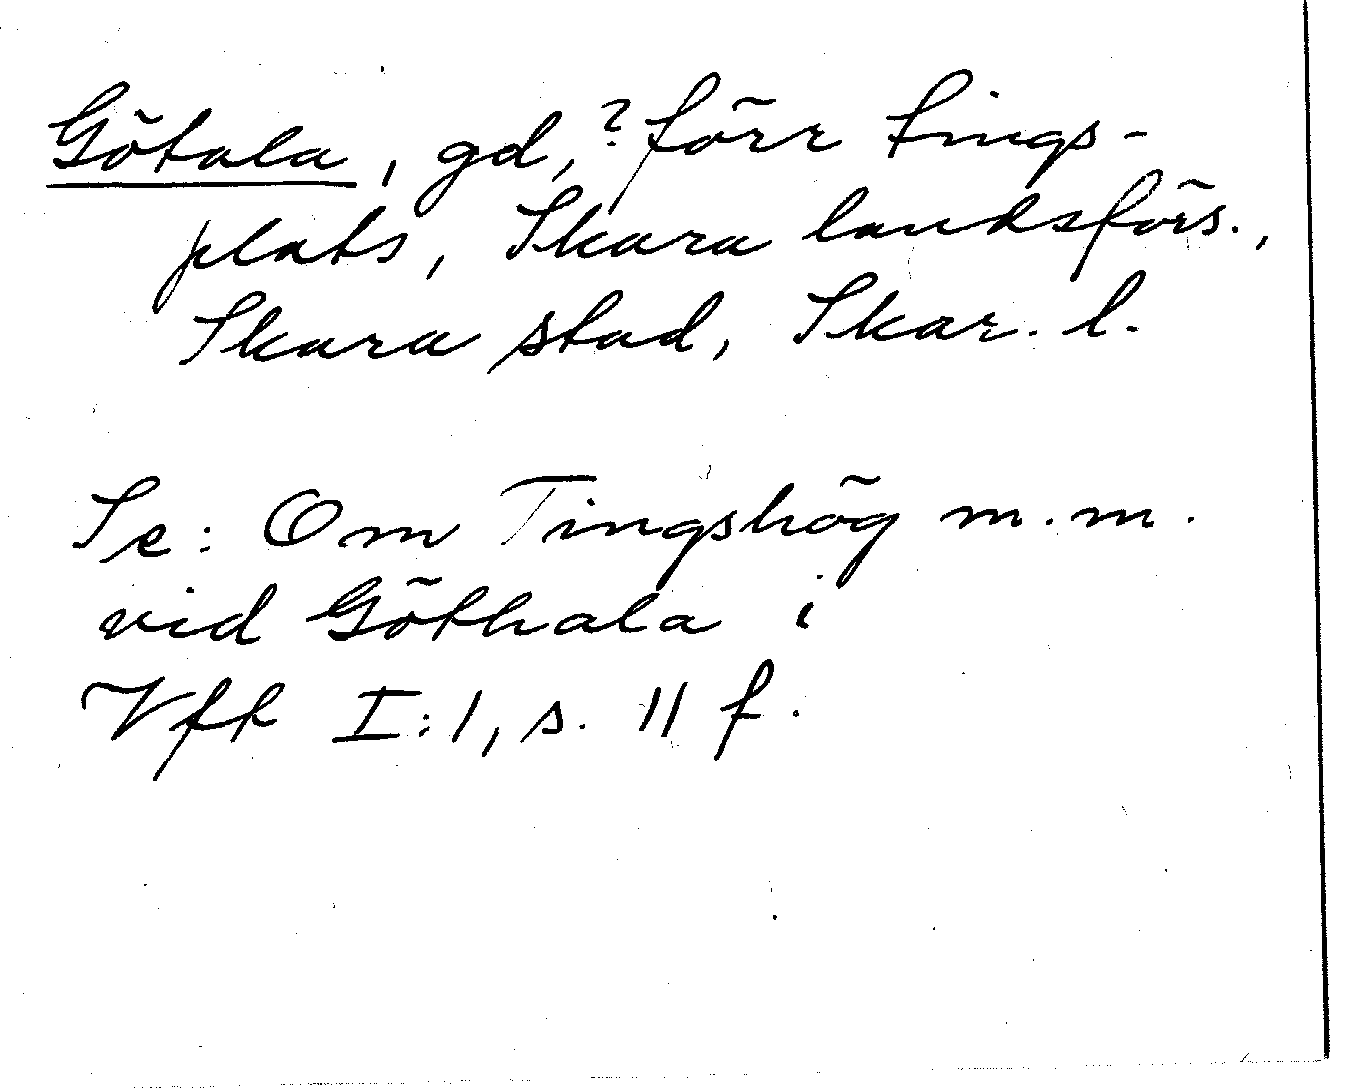 Götala, gd,? förr tings-
plats, Skara landsförs.,
Skara stad, Skar. l.
Se: Om Tingshög m.m.
vid Göthala i
Vft I:1, s. 11 f.